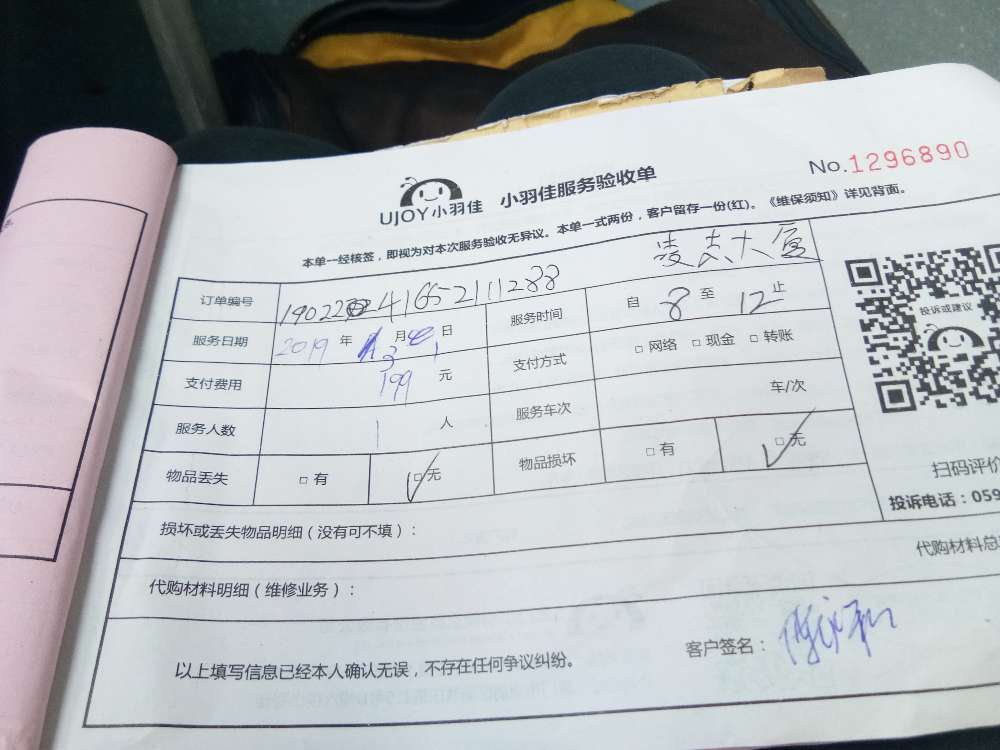 No.1296890
UJOY小羽佳 小羽佳服务验收单
本单一经核签，即视为对本次服务验收无异议。本单一式两份，客户留存一份(红)。《维保须知》详见背面。
凌云大厦
订单编号
服务日期 2019 年 3 月 日 服务时间 自 8 至 12 止
支付费用 199 元 支付方式 □ 网络 □ 现金 □ 转账
服务人数 1 人 服务车次 车/次
物品丢失 □ 有 □ 无 物品损坏 □ 有 □ 无
投诉或建议
扫码评价
投诉电话：059
损坏或丢失物品明细（没有可不填）：
代购材料总
代购材料明细（维修业务）：
以上填写信息已经本人确认无误，不存在任何争议纠纷。
客户签名：